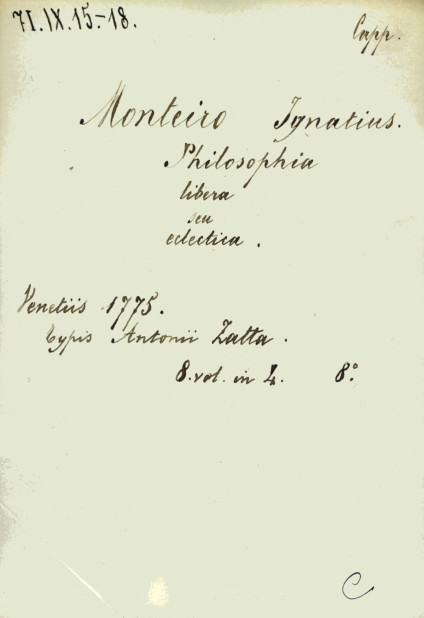 71.IX.15.-18.
Capp.
Monteiro Ignatius.
Philosophia
libera
seu
eclectica.
Venetiis 1775.
typis Antonii Zatta.
8. vol. in 4. 8°.
C